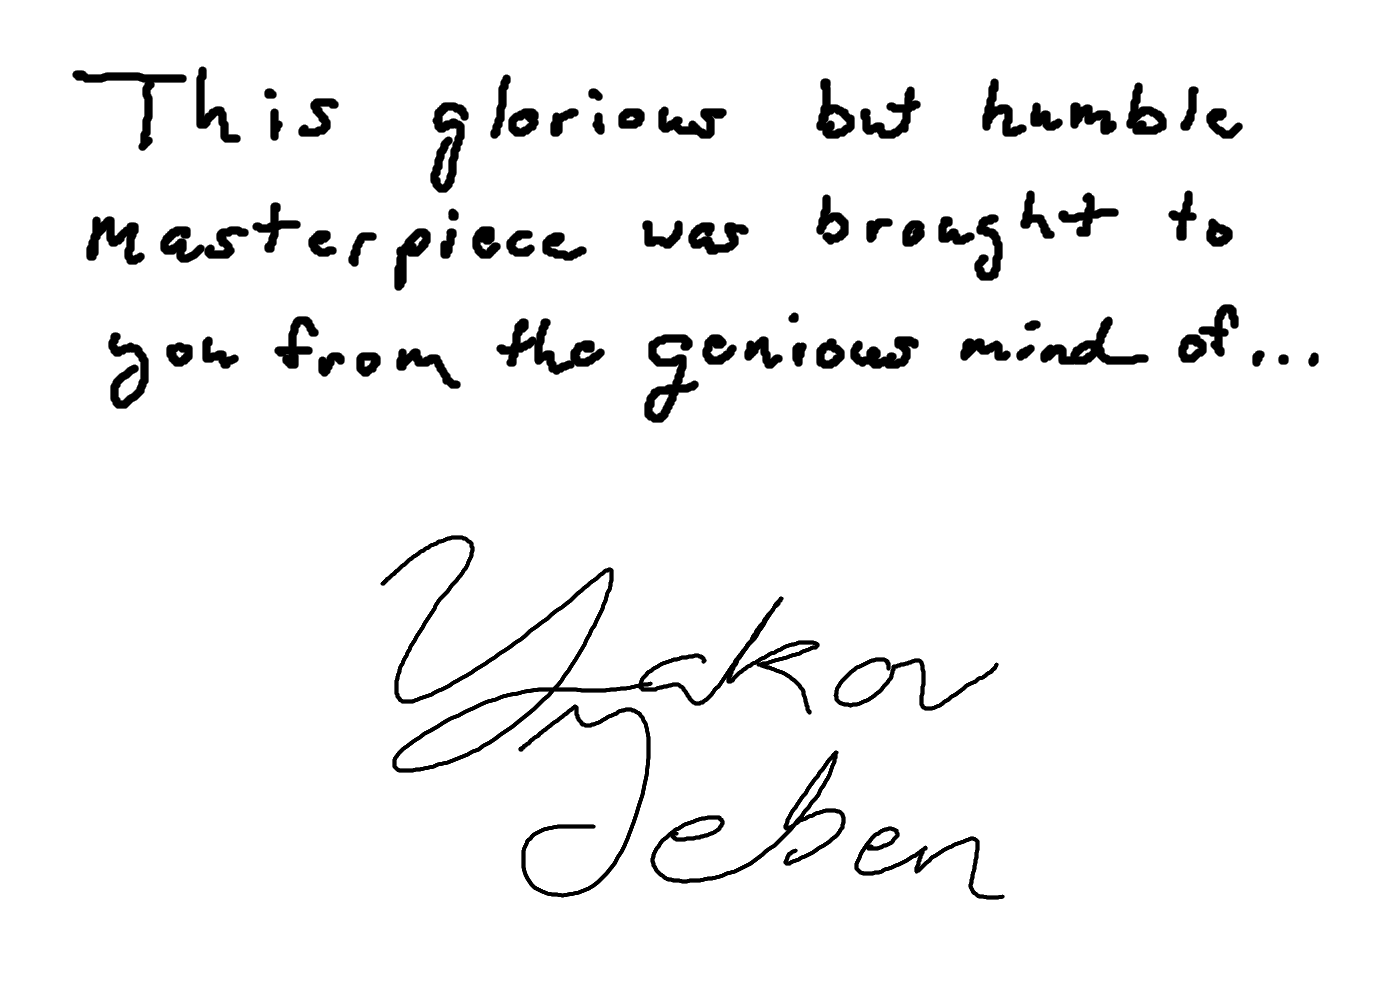 This glorious but humble
masterpiece was brought to
you from the genious mind of...
Yakov
Jeben